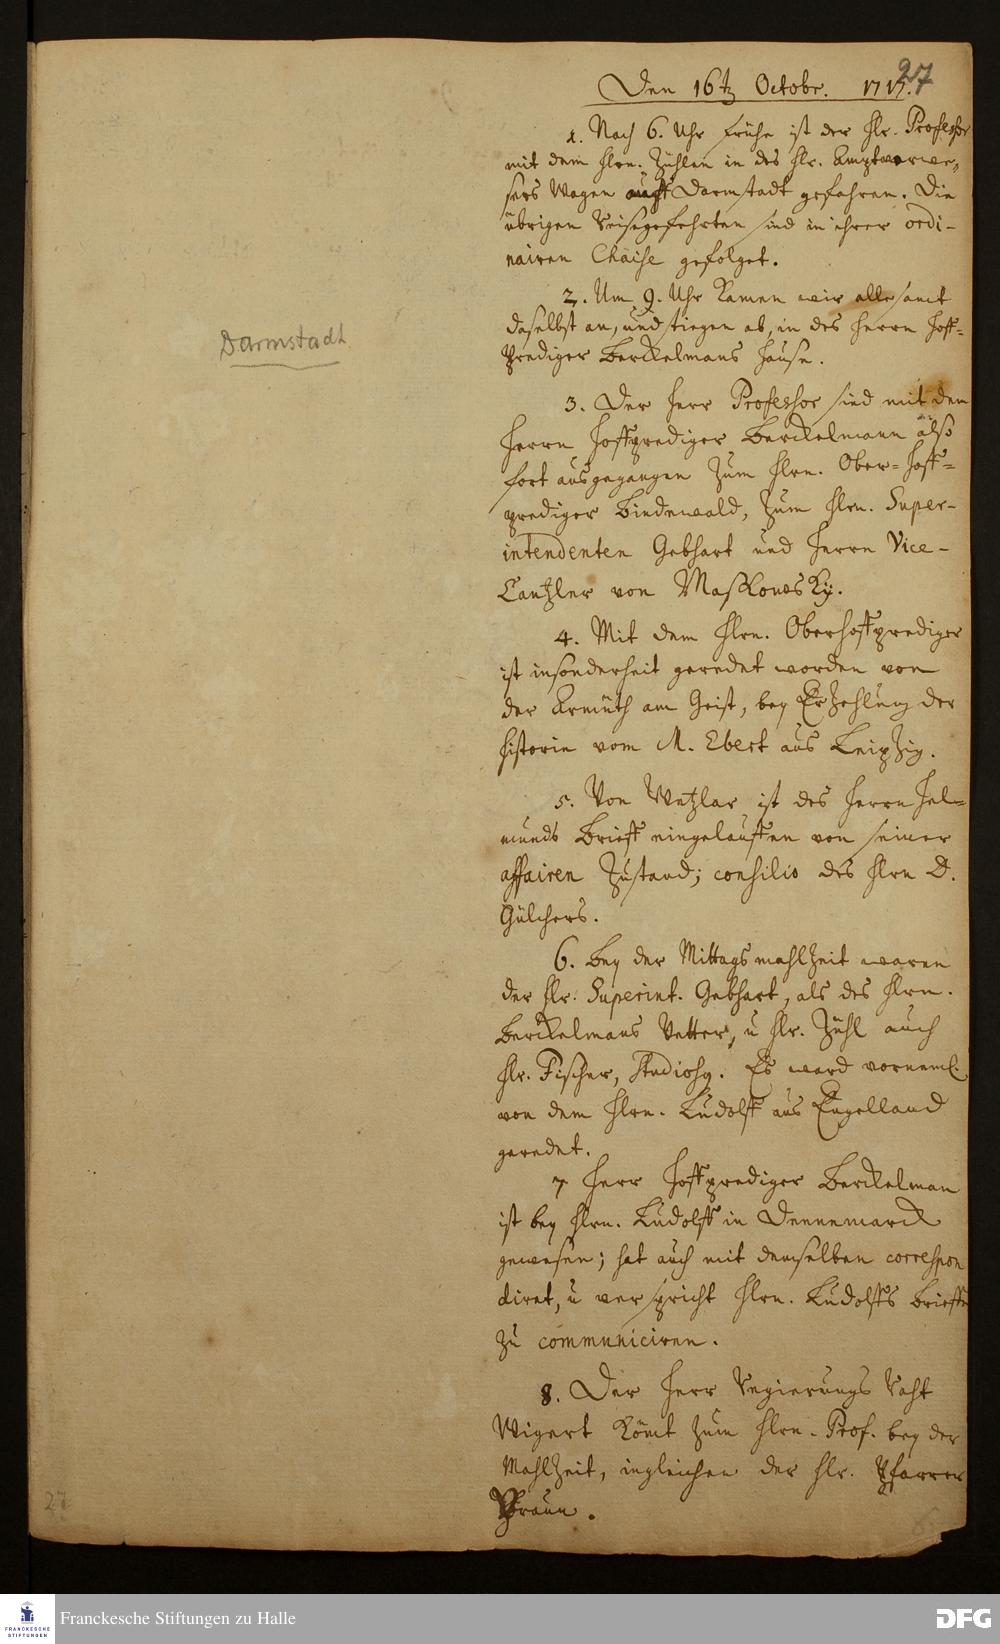 27
Den 16t. Octobr. 1717.
1. Nach 6. Uhr frühe ist der Hr. Professor
mit dem Hrn. Zühlen in des Hr. Amptverwe-
sers Wagen auff Darmstadt gefahren. Die
übrigen Reisegefehrten sind in ihrer ordi-
nairen Chaise gefolget.
2. Um 9. Uhr kamen wir alle samt
daselbst an, und stiegen ab, in des Herrn Hoff-
Prediger Berckelmans Hause.
Darmstadt
3. Der Herr Professor sind mit dem
Herrn Hoffprediger Berckelmann also
fort ausgegangen zum Hrn. Ober-Hoff-
prediger Bindewald, zum Hrn. Super-
intendenten Gebhart und Herrn Vice-
Cantzler von Maskowsky.
4. Mit dem Hrn. Oberhoffprediger
ist insonderheit geredet worden von
der Armuth am Geist, bey Erzehlung der
Historie vom M. Ebert aus Leipzig.
5. Von Wetzlar ist des Herrn Hel-
munds Brieff eingelauffen von seiner
affairen Zustand; consilio des Hrn D.
Gülchers.
6. Bey der Mittagsmahlzeit waren
der Hr. Superint. Gebhart, als des Hrn.
Berckelmans Vetter, u Hr. Zühl auch
Hr. Fischer, Studiosq. Es ward vorneml.
von dem Hrn. Ludolff aus Engelland
geredet.
7 Herr Hoffprediger Berckelman
ist bey Hrn. Ludolff in Dennemarck
gewesen; hat auch mit demselben correspon
diret, u verspricht Hrn. Ludolffs Brieffe
zu communiciren.
8. Der Herr Regierungs Raht
Wigert kömt zum Hrn. Prof. bey der
Mahlzeit, ingleichen der Hr. Pfarrer
Praun.
27
FRANCKESCHE
STIFTUNGEN
Franckesche Stiftungen zu Halle
DFG